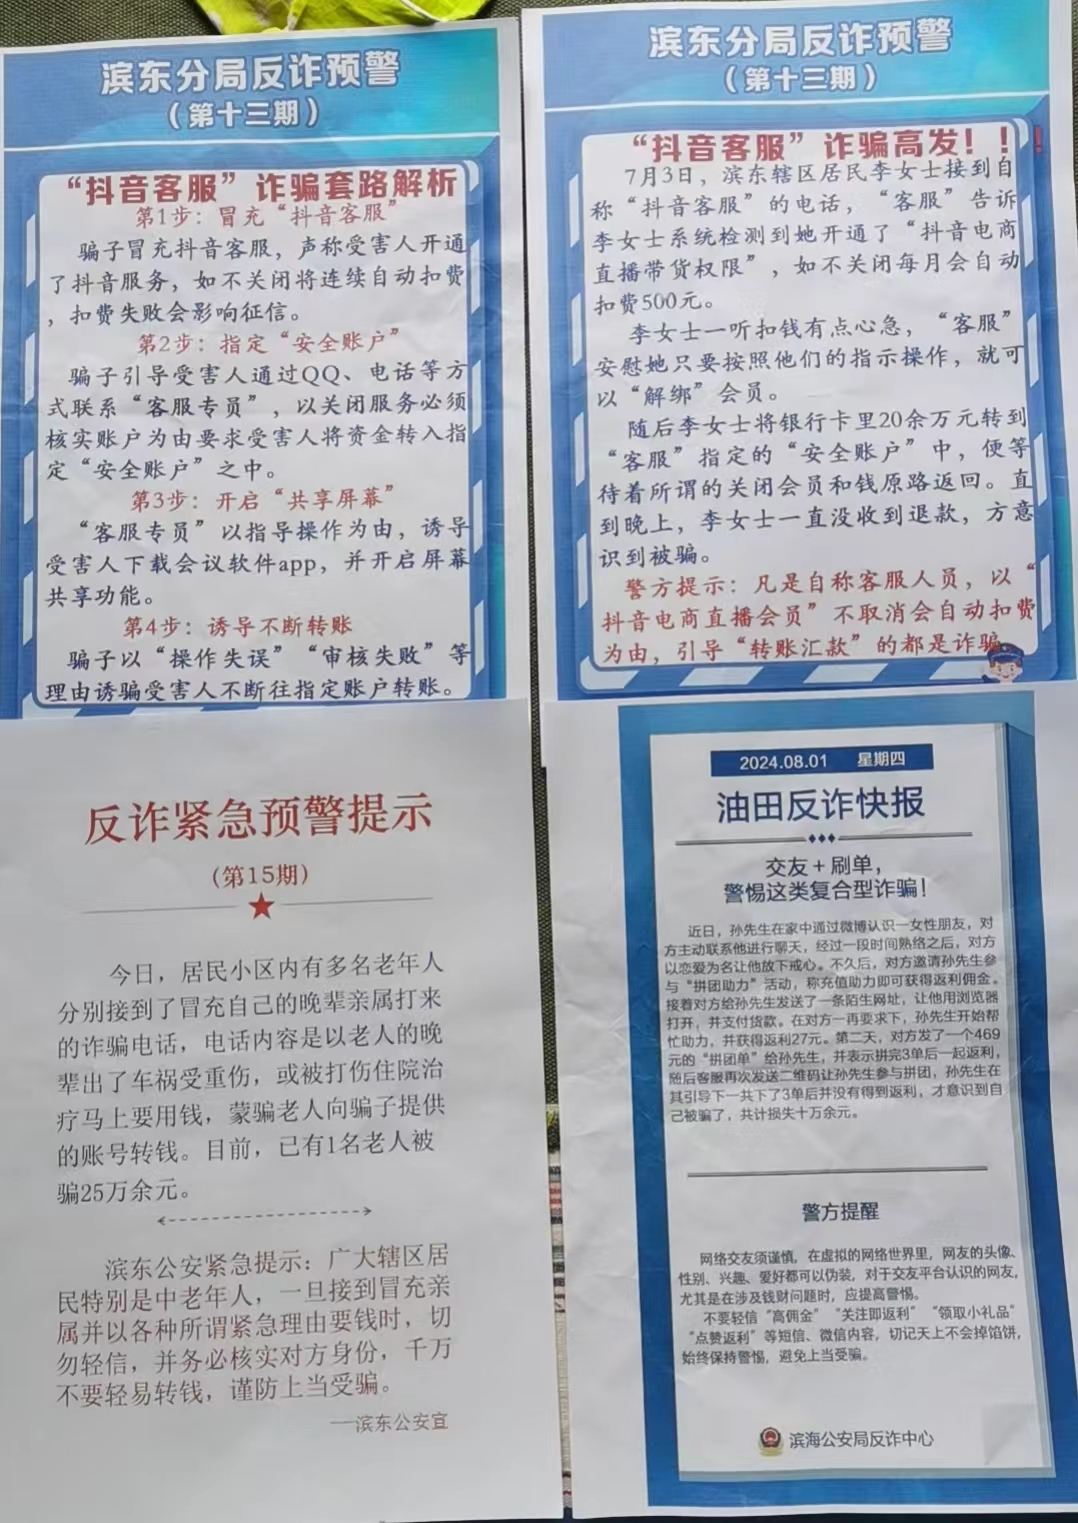 滨东分局反诈预警
（第十三期）
“抖音客服”诈骗套路解析
第1步：冒充“抖音客服”
骗子冒充抖音客服，声称受害人开通
了抖音服务，如不关闭将连续自动扣费
，扣费失败会影响征信。
第2步：指定“安全账户”
骗子引导受害人通过QQ、电话等方
式联系“客服专员”，以关闭服务必须
核实账户为由要求受害人将资金转入指
定“安全账户”之中。
第3步：开启“共享屏幕”
“客服专员”以指导操作为由，诱导
受害人下载会议软件app，并开启屏幕
共享功能。
第4步：诱导不断转账
骗子以“操作失误”“审核失败”等
理由诱骗受害人不断往指定账户转账。
滨东分局反诈预警
（第十三期）
“抖音客服”诈骗高发！！！
7月3日，滨东辖区居民李女士接到自
称“抖音客服”的电话，“客服”告诉
李女士系统检测到她开通了“抖音电商
直播带货权限”，如不关闭每月会自动
扣费500元。
李女士一听扣钱有点心急，“客服”
安慰她只要按照他们的指示操作，就可
以“解绑”会员。
随后李女士将银行卡里20余万元转到
“客服”指定的“安全账户”中，便等
待着所谓的关闭会员和钱原路返回。直
到晚上，李女士一直没收到退款，方意
识到被骗。
警方提示：凡是自称客服人员，以“
抖音电商直播会员”不取消会自动扣费
为由，引导“转账汇款”的都是诈骗
反诈紧急预警提示
（第15期）
今日，居民小区内有多名老年人
分别接到了冒充自己的晚辈亲属打来
的诈骗电话，电话内容是以老人的晚
辈出了车祸受重伤，或被打伤住院治
疗马上要用钱，蒙骗老人向骗子提供
的账号转钱。目前，已有1名老人被
骗25万余元。
滨东公安紧急提示：广大辖区居
民特别是中老年人，一旦接到冒充亲
属并以各种所谓紧急理由要钱时，切
勿轻信，并务必核实对方身份，千万
不要轻易转钱，谨防上当受骗。
——滨东公安宣
2024.08.01 星期四
油田反诈快报
交友+刷单，
警惕这类复合型诈骗！
近日，孙先生在家中通过微博认识一女性朋友，对
方主动联系他进行聊天，经过一段时间熟络之后，对方
以恋爱为名让他放下戒心。不久后，对方邀请孙先生参
与“拼团助力”活动，称充值助力即可获得返利佣金。
接着对方给孙先生发送了一条陌生网址，让他用浏览器
打开，并支付货款。在对方一再要求下，孙先生开始帮
忙助力，并获得返利27元。第二天，对方发了一个469
元的“拼团单”给孙先生，并表示拼完3单后一起返利，
随后客服再次发送二维码让孙先生参与拼团，孙先生在
其引导下一共下了3单后并没有得到返利，才意识到自
己被骗了，共计损失十万余元。
警方提醒
网络交友须谨慎，在虚拟的网络世界里，网友的头像、
性别、兴趣、爱好都可以伪装，对于交友平台认识的网友，
尤其是在涉及钱财问题时，应提高警惕。
不要轻信“高佣金”“关注即返利”“领取小礼品”
“点赞返利”等短信、微信内容，切记天上不会掉馅饼，
始终保持警惕，避免上当受骗。
滨海公安局反诈中心